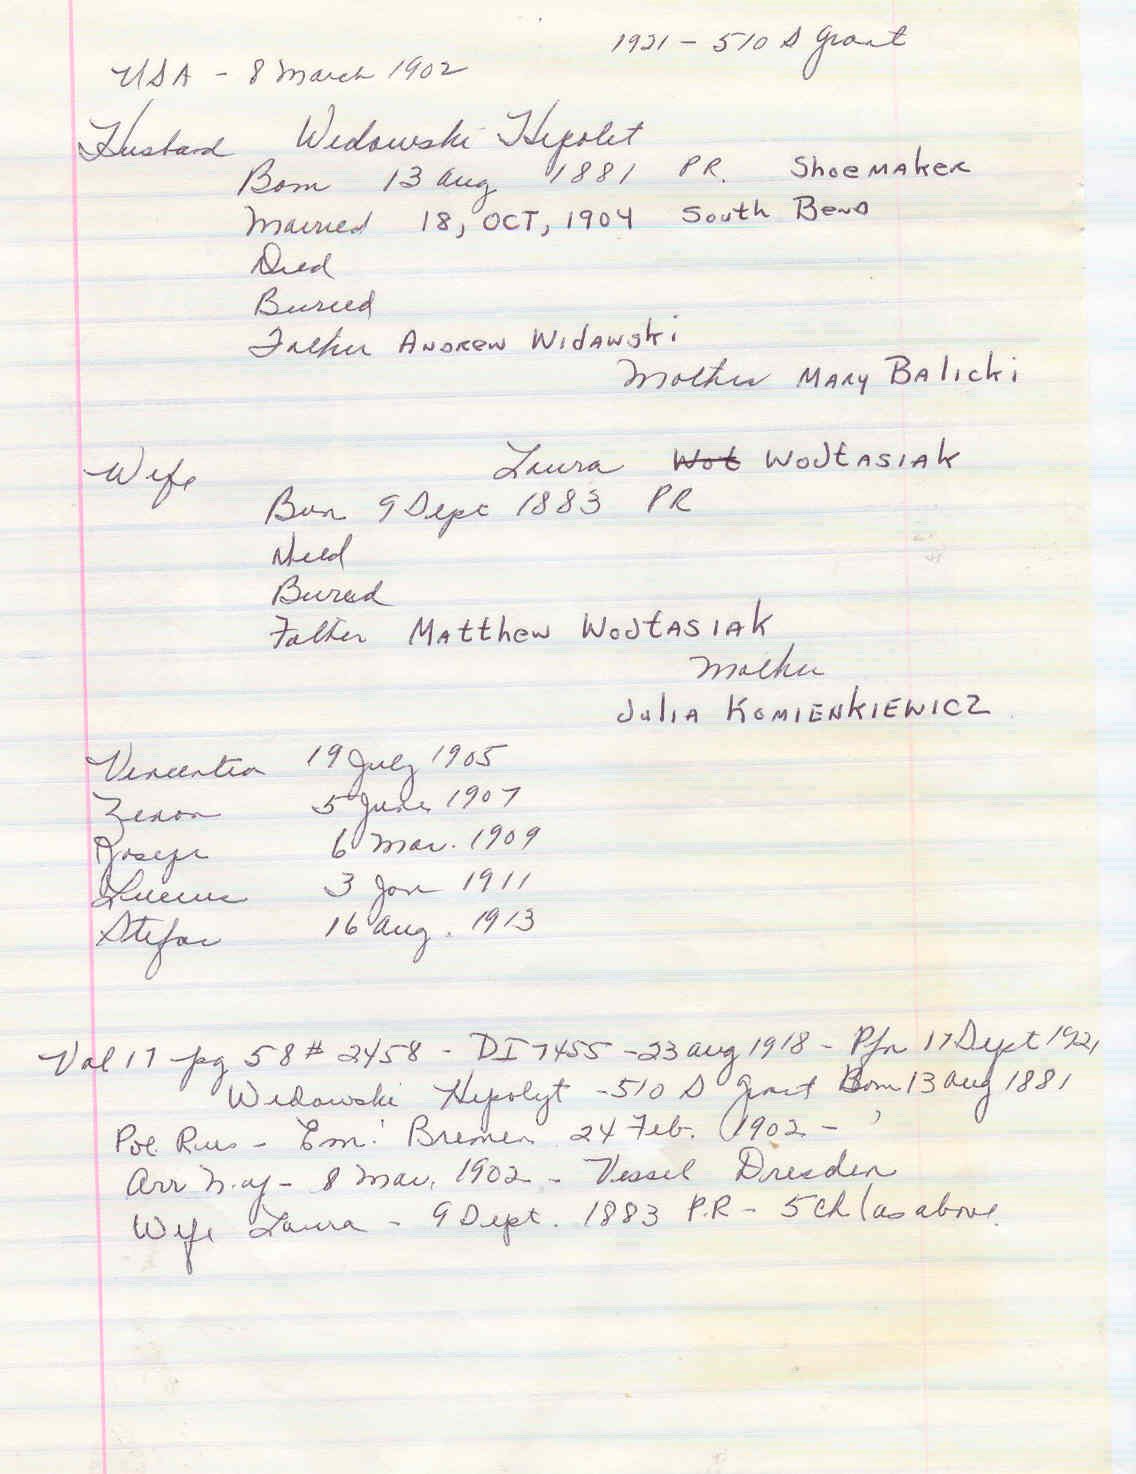 1921 - 510 S Grant
USA - 8 March 1902
Husband Widawski Hipolit
Born 13 Aug 1881 PR. Shoemaker
Married 18, OCT, 1904 South Bend
Died
Buried
Father Andrew Widawski
Mother Mary Balicki
Wife Laura Wot Wojtasiak
Born 9 Sept 1883 PR
Died
Buried
Father Matthew Wojtasiak
Mother
Julia Komienkiewicz
Vincentia 19 July 1905
Zenon 5 June 1907
Joseph 6 Mar. 1909
3 Jan 1911
Stefan 16 Aug. 1913
Vol 17 pg 58 # 2458 - DI 7455 - 23 Aug 1918 - Ptn 17 Sept 1921
Widawski Hipolyt - 510 S Grant Born 13 Aug 1881
Pol. Rus - Em. Bremen 24 Feb. 1902 -
Arr N.Y - 8 Mar. 1902 - Vessel Dresden
Wife Laura - 9 Sept. 1883 P.R - 5 ch / as above.